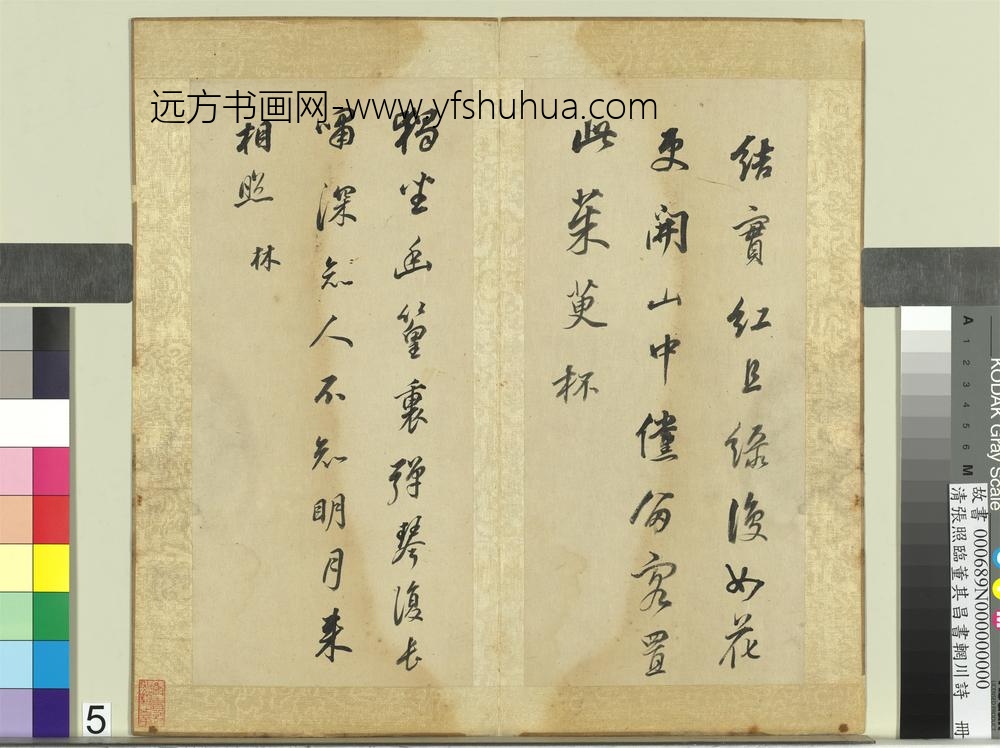 远方书画网-www.yfshuhua.com
結實紅且綠復如花
更開山中儻留客置
此茱萸杯
獨坐幽篁裏彈琴復長
嘯深知人不知明月来
相照 林
5
KODAK Gray Scale
A 1 2 3 4 5 6 M
故書 000689N000000000
清張照臨董其昌書輞川詩 冊